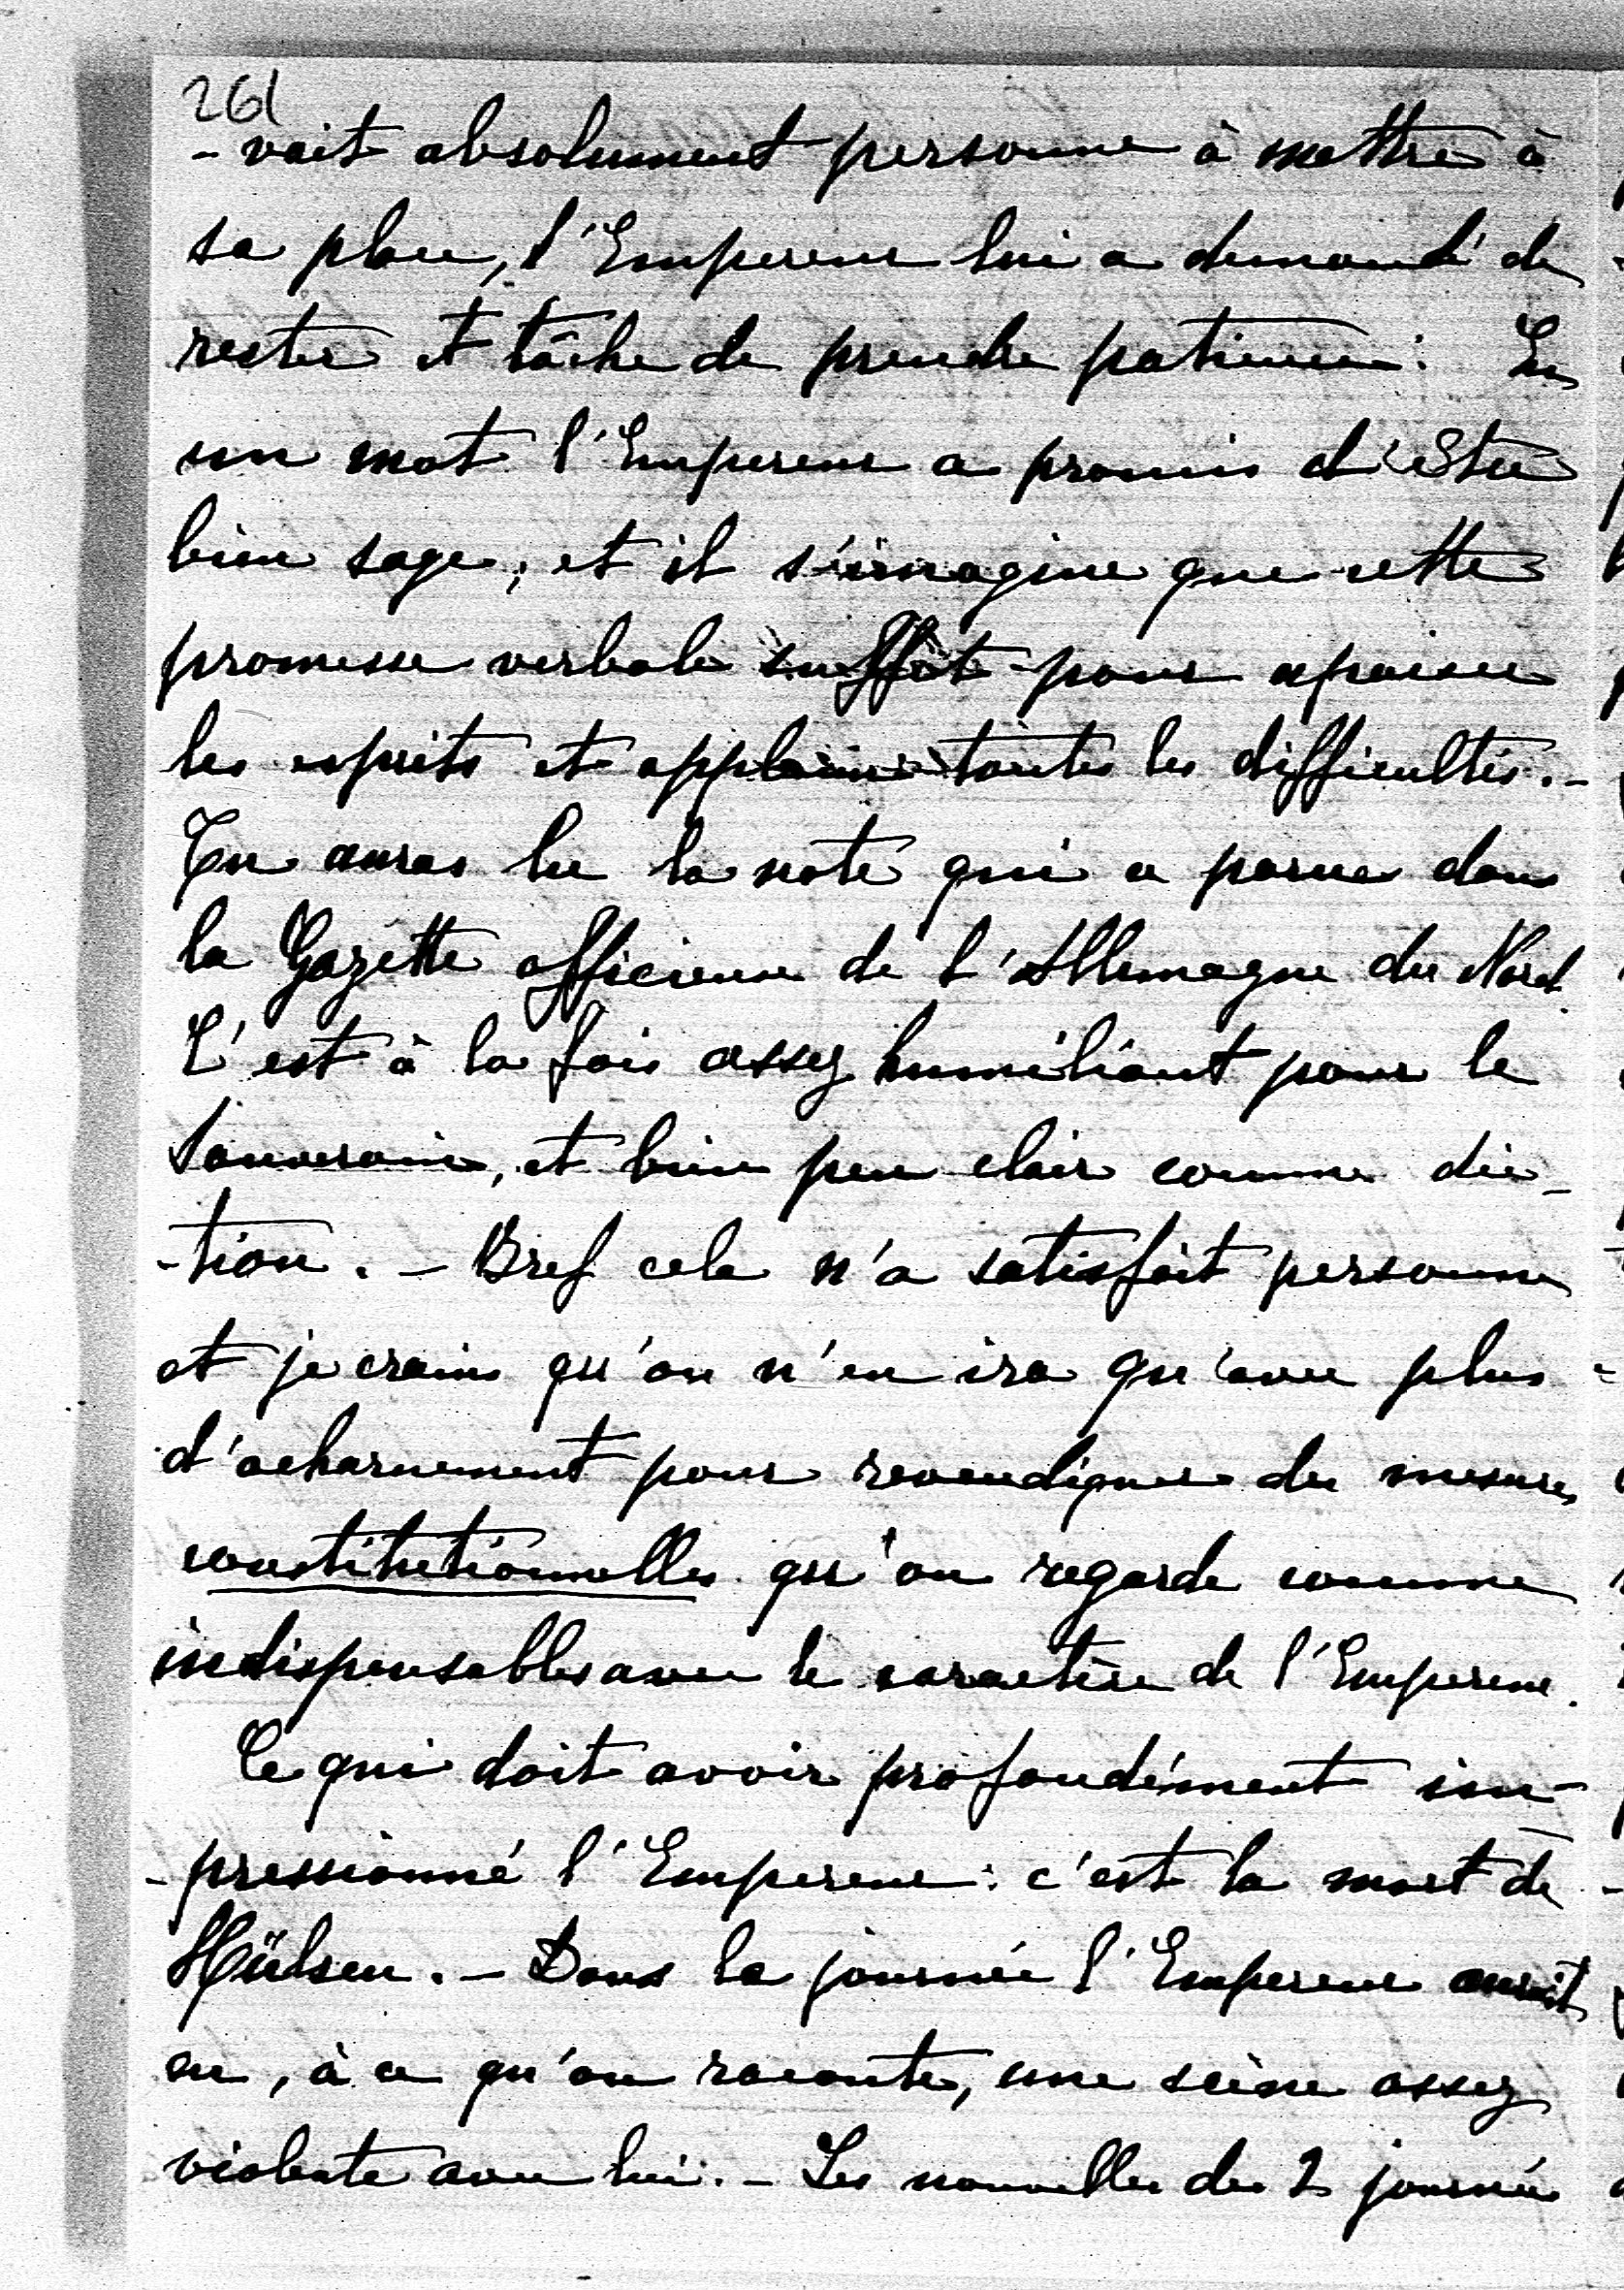 261
- vait absolument personne à mettre à
sa place, l'Empereur lui a demandé de
rester et tâche de prendre patience. En
un mot l'Empereur a promis d'être
bien sage, et il s'imagine que cette
promesse verbale suffit pour apaiser
les esprits et applanir toutes les difficultés. -
Tu auras lu la note qui a parue dans
la Gazette officieuse de l'Allemagne du Nord.
C'est à la fois assez humiliant pour le
Souverain, et bien peu clair comme dic-
-tion. - Bref cela n'a satisfait personne
et je crains qu'on n'en ira qu'avec plus
d'acharnement pour revendiquer des mesures
constitutionnelles qu'on regarde comme
indispensables avec le caractère de l'Empereur.
Ce qui doit avoir profondément im-
-pressionné l'Empereur : c'est la mort de
Hülsen. - Dans la journée l'Empereur aurait
eu, à ce qu'on raconte, une scène assez
violente avec lui. - Les nouvelles des 2 journées